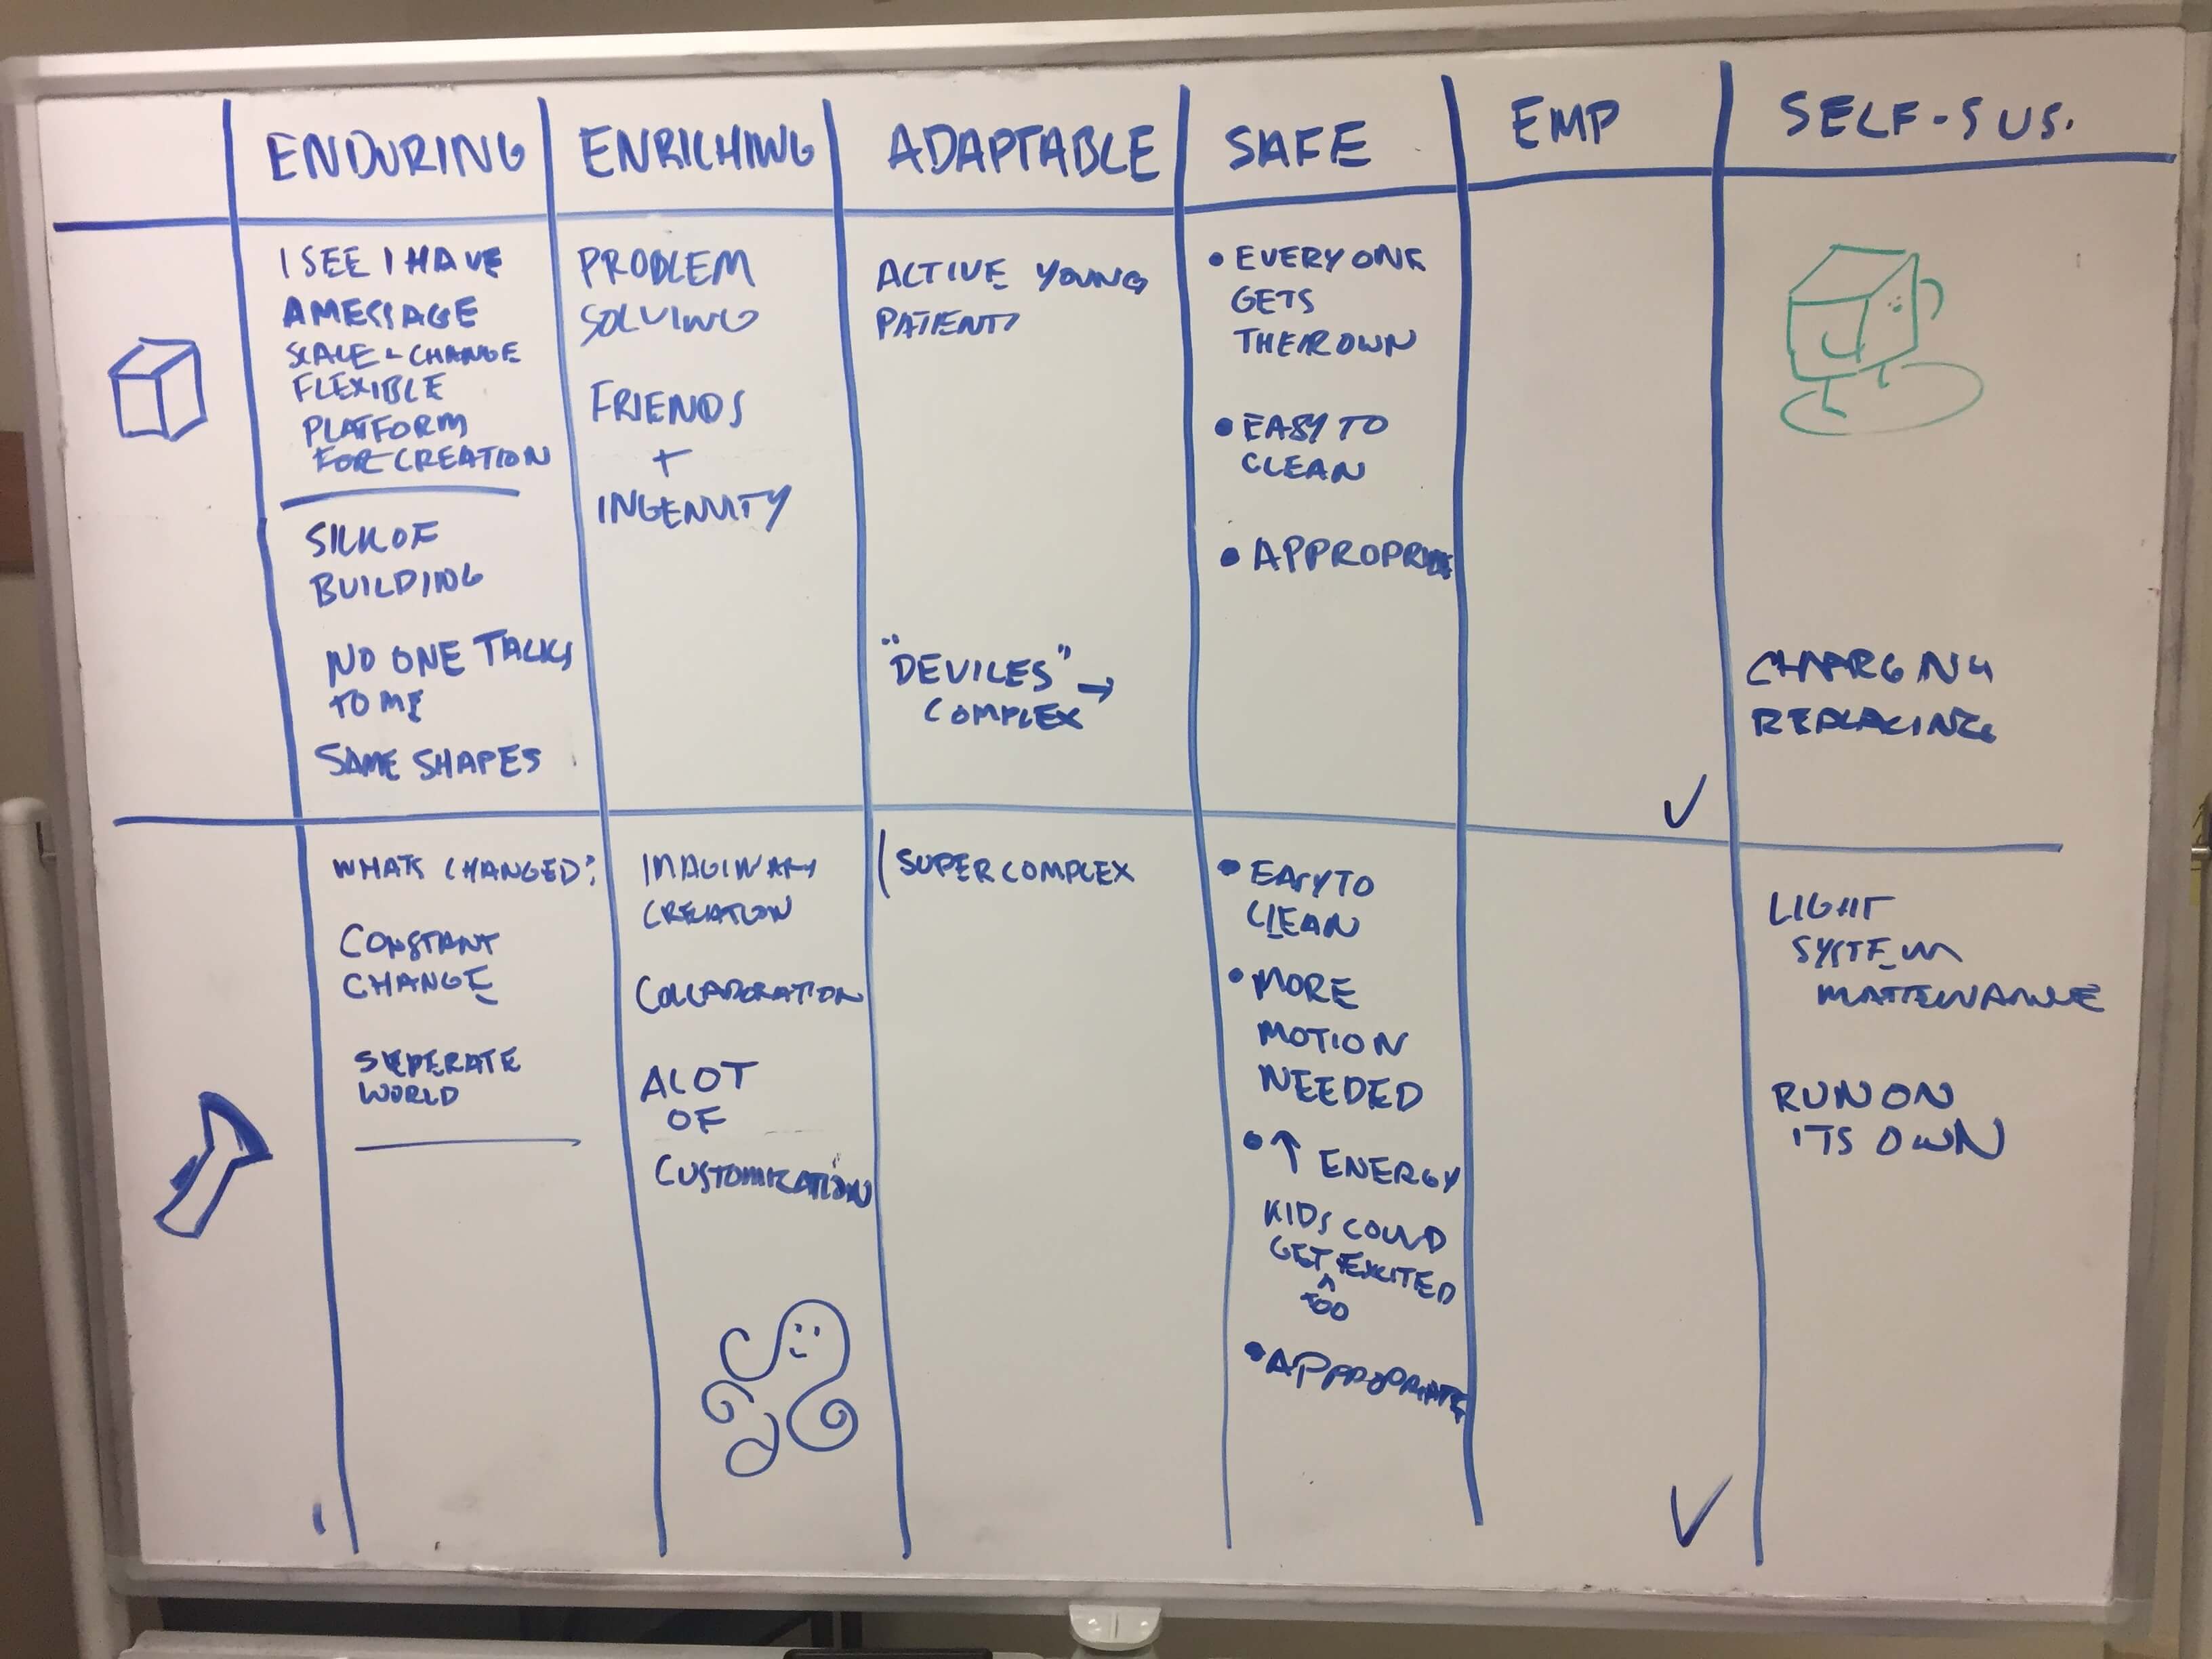 ENDURING
ENRICHING
ADAPTABLE
SAFE
EMP
SELF-SUS.
I SEE I HAVE
A MESSAGE
SCALE + CHANGE
FLEXIBLE
PLATFORM
FOR CREATION
SICK OF
BUILDING
NO ONE TALKS
TO ME
SAME SHAPES
PROBLEM
SOLVING
FRIENDS
+
INGENUITY
ACTIVE YOUNG
PATIENTS
"DEVICES" →
COMPLEX
• EVERYONE
GETS
THEIR OWN
• EASY TO
CLEAN
• APPROPRIATE
CHARGING
REPLACING
✓
WHATS CHANGED?
CONSTANT
CHANGE
SEPERATE
WORLD
IMAGINARY
CREATION
COLLABORATION
ALOT
OF
CUSTOMIZATION
SUPER COMPLEX
• EASY TO
CLEAN
• MORE
MOTION
NEEDED
• ↑ ENERGY
KIDS COULD
GET EXCITED
^
TOO
• APPROPRIATE
✓
LIGHT
SYSTEM
MATTENANCE
RUN ON
ITS OWN